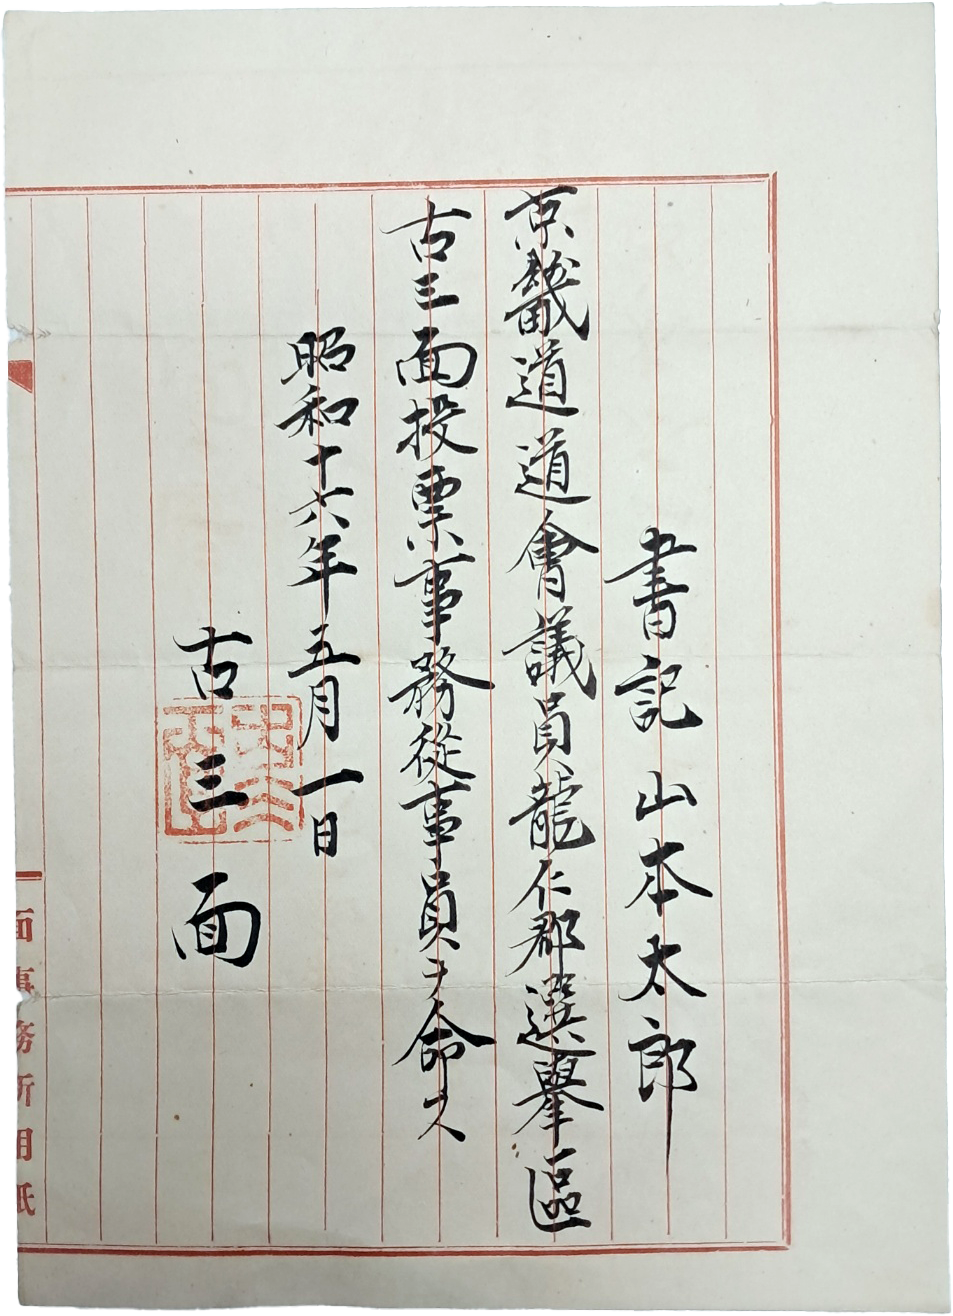 書記 山本太郎
京畿道道會議員龍仁郡選擧區
古三面投票事務從事員ヲ命ス
昭和十六年五月一日
古三面
面事務所用紙